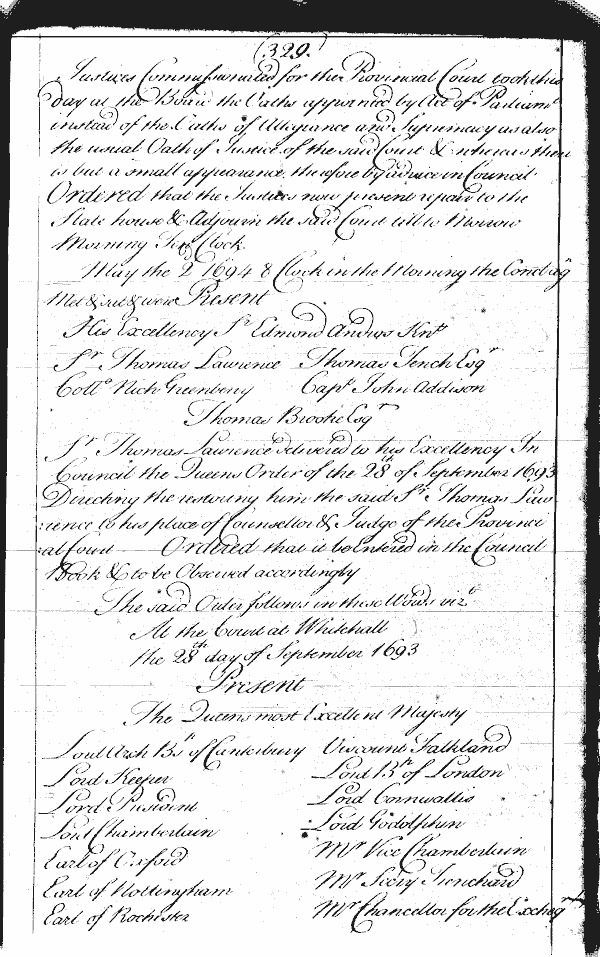 (329.)
Justices Commissionated for the Provincial Court took this
day at the Board the Oaths appointed by Act of Parliamt
instead of the Oaths of Allegiance and Supremacy as also
the usual Oath of Justice of the said Court & whereas there
is but a small appearance, therefore by advice in Council
Ordered that the Justices now present repair to the
State house & Adjourn the said Court till to Morrow
Morning Ten Clock.
May the 2d 1694 8 Clock in the Morning the Councl agn
Met & sat & were Present
His Excellency Sr Edmond Andros Knt
Sr Thomas Lawrence Thomas Tench Esqr
Collo Nich Greenbery Capt John Addison
Thomas Brooke Esqr
Sr Thomas Lawrence delivered to his Excellency In
Council the Queens Order of the 28th of September 1693
Directing the restoring him the said Sr Thomas Law
rence to his place of Counsellor & Judge of the Provinci
al Court Ordered that it be Entered in the Council
Book & to be Observed accordingly
The said Order follows in these Words vizt
At the Court at Whitehall
the 28th day of September 1693
Present
The Queens most Excellent Majesty
Lord Arch Bsp of Canterbury Viscount Falkland
Lord Keeper Lord Bp of London
Lord President Lord Cornwallis
Lord Chamberlain Lord Godolphin
Earl of Oxford Mr Vice Chamberlain
Earl of Nottingham Mr Secry Trenchard
Earl of Rochester Mr Chancellor for the Excheqr